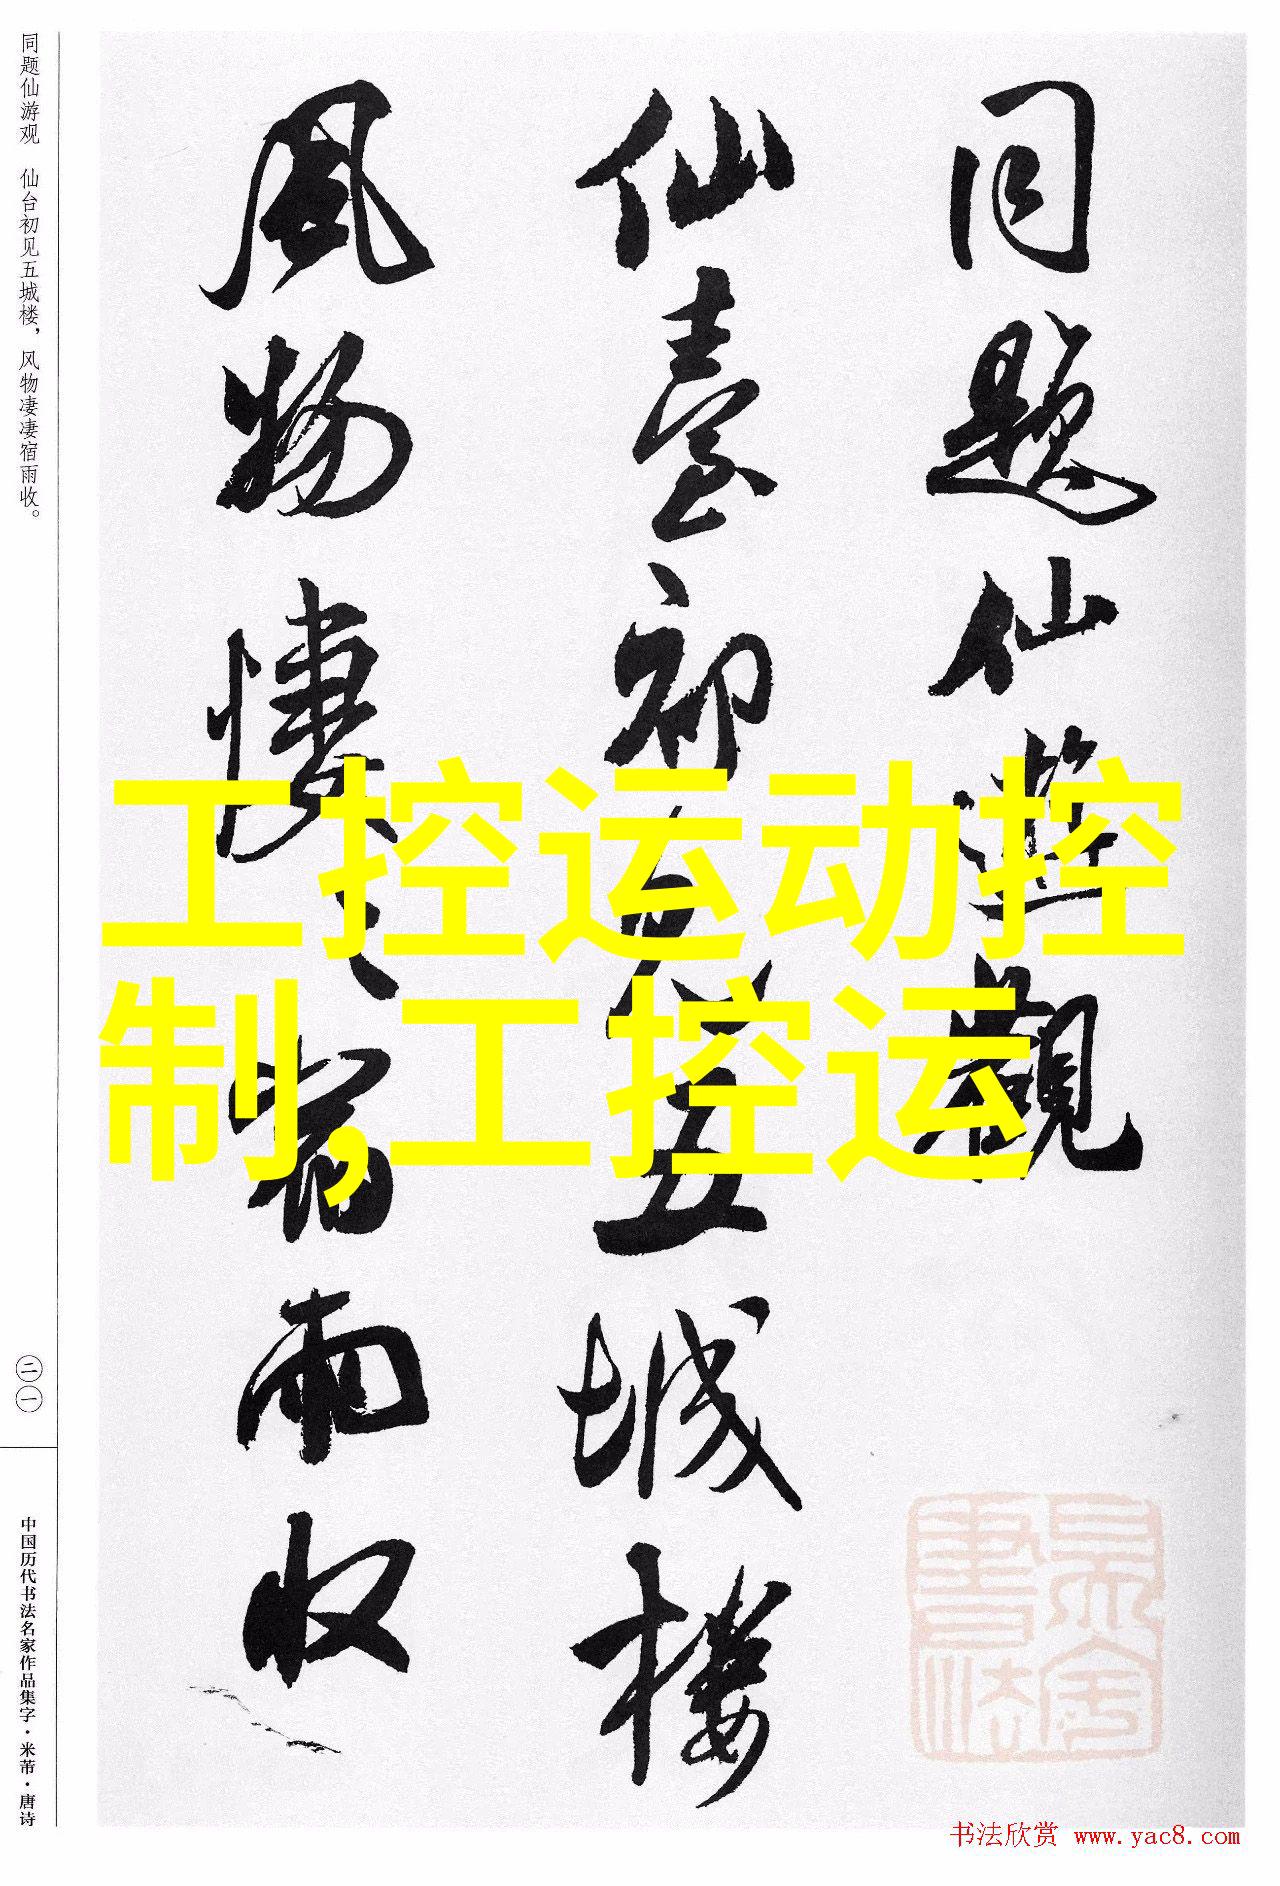 同题仙游观　仙台初见五城楼，风物凄凄宿雨收。
同題仙遊觀
仙臺初見五城樓
風物悽々宿雨收
工控运动控
制,工控运
二一
中国历代书法名家作品集字·米芾·唐诗
书法欣赏 www.yac8.com